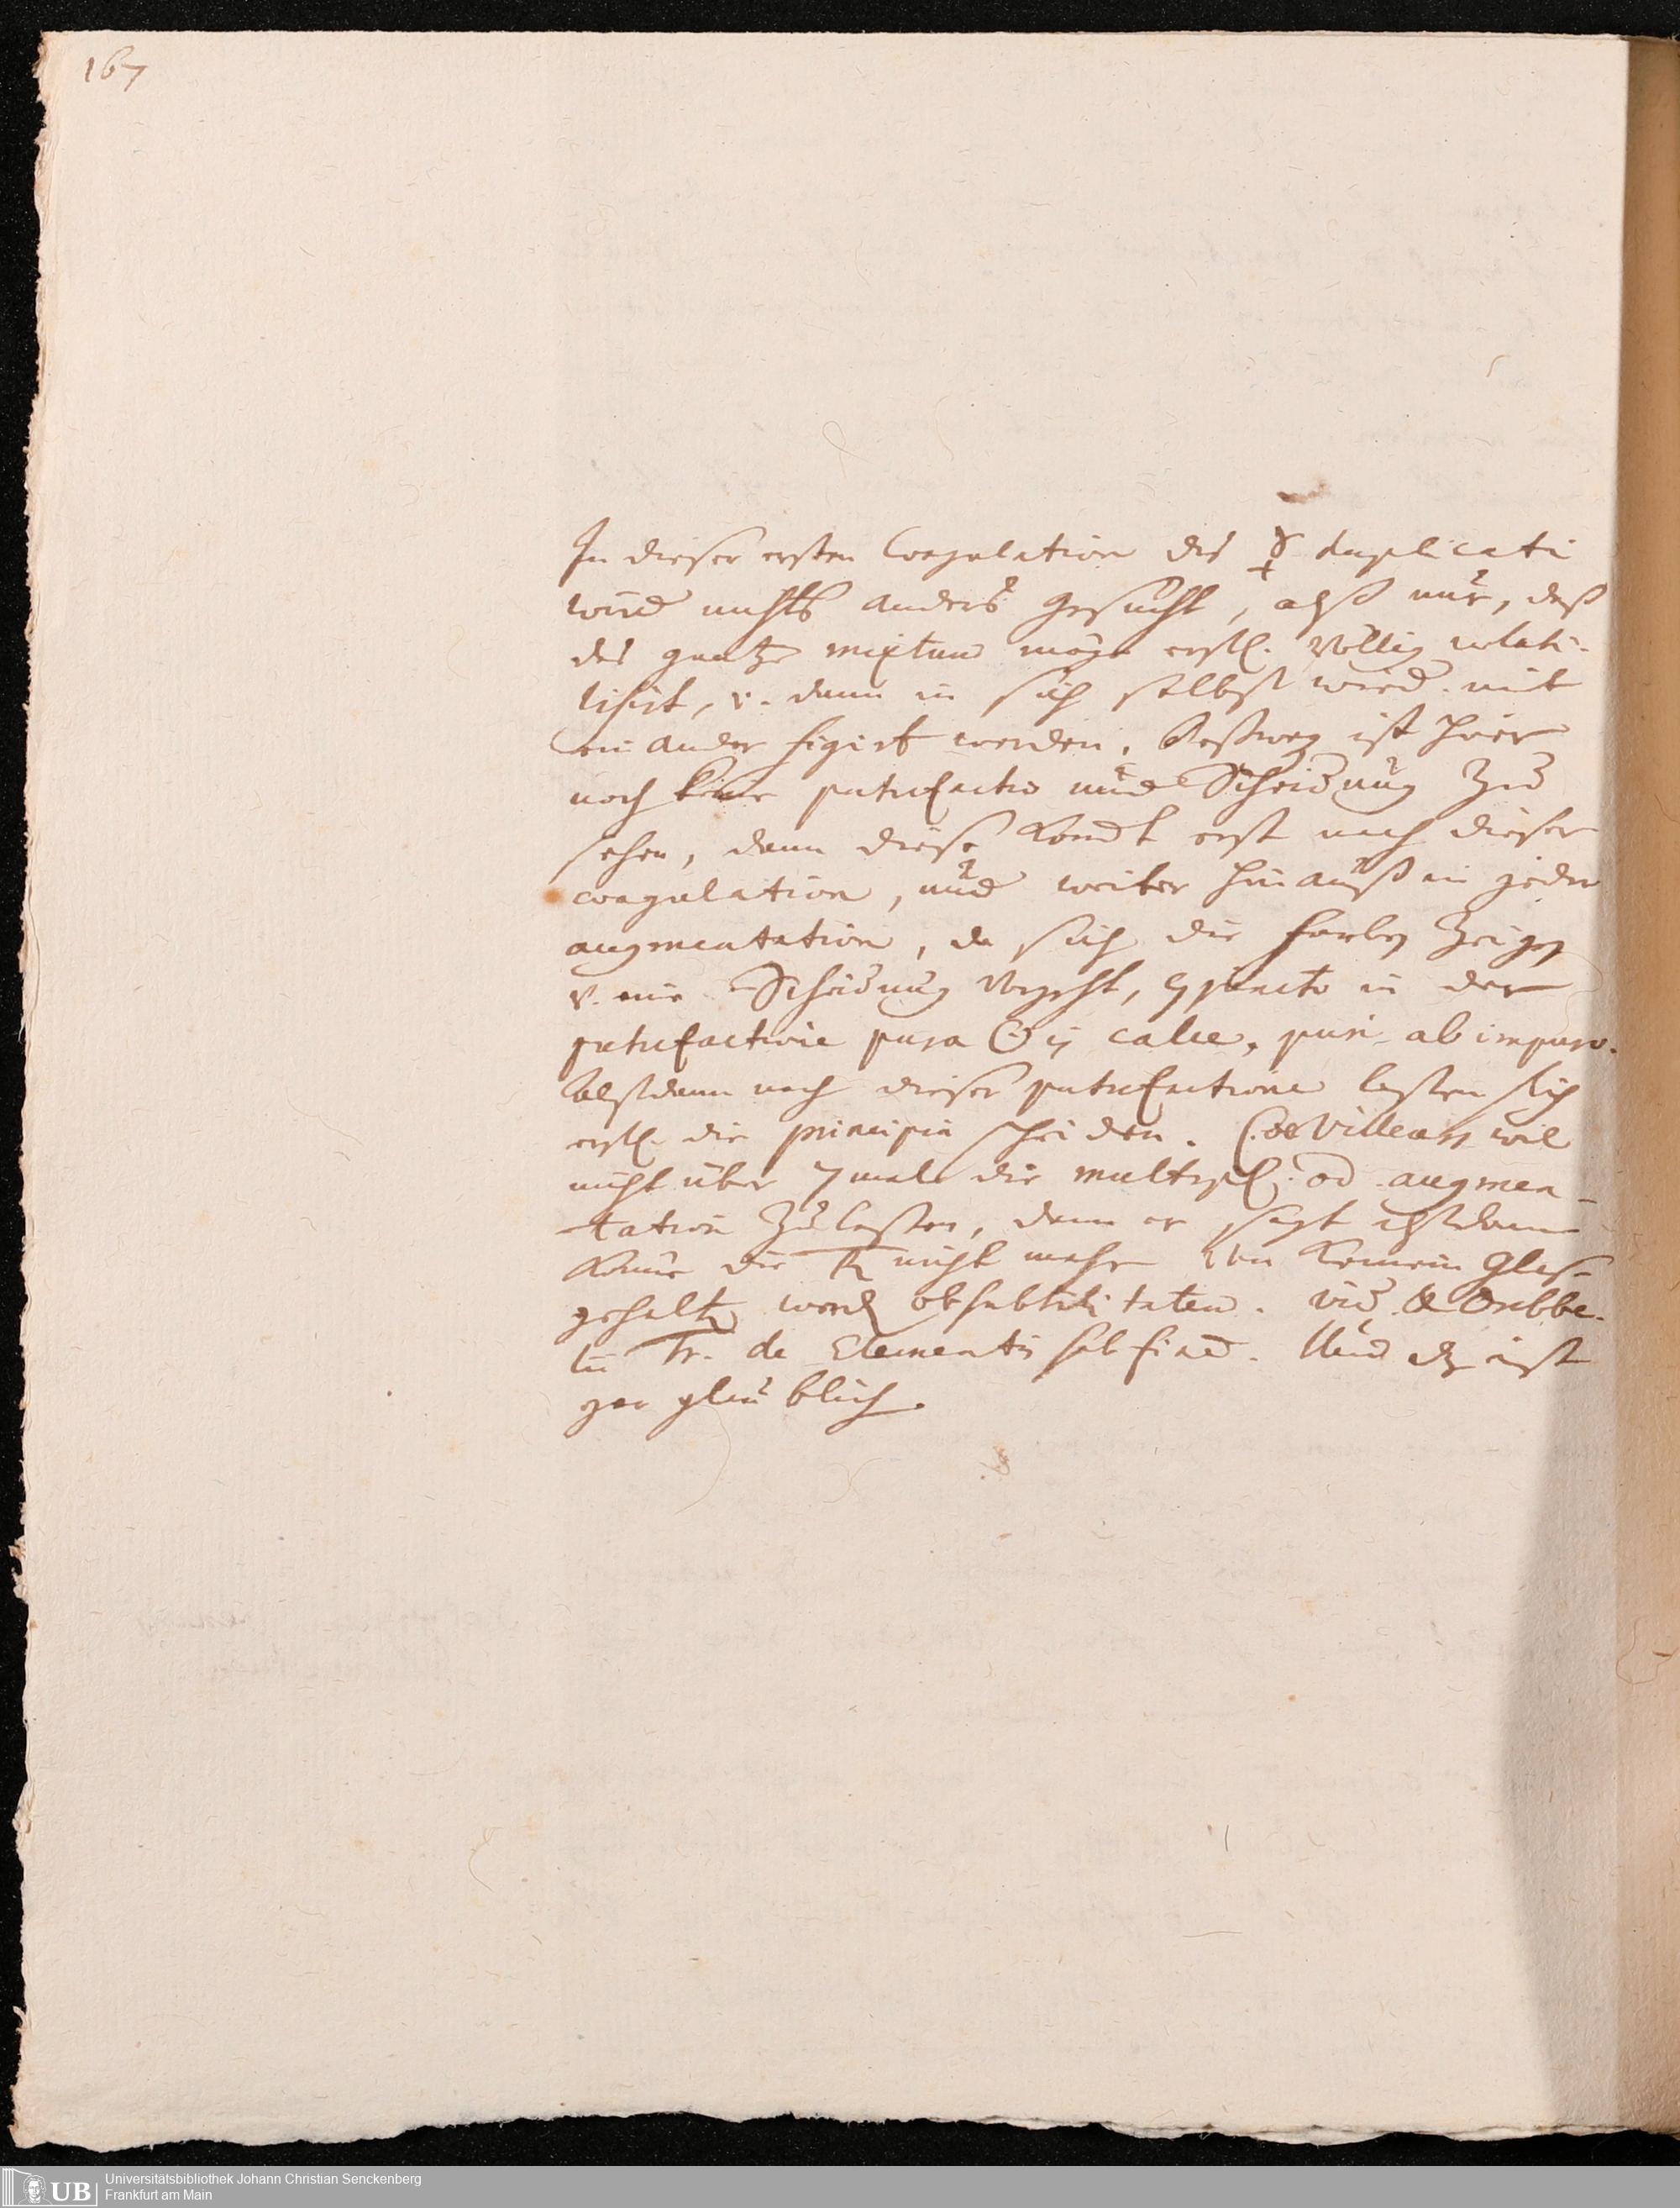 167
In dieser ersten Coagulation des ☿ duplicati
wird nichts anders gesucht, alß nur, daß
das gantze mixtum möge erstl. völlig volati-
lisirt, v. dann in sich selbst wied. mit
ein ander figirt werden. Deßweg ist hier
noch keine putrefactio und Scheidung zu
sehen, dann diese komt erst nach dieser
coagulation, und weiter hinauß in jeder
augmentation, da sich die farben zeigen
v. eine Scheidung vorgeht, in der
putrefactione pura ☉ij calce, puri ab impuro.
Alßdann nach dieser putrefactione lassen sich
erstl. die principia scheiden. wil
nicht über 7 mal die multipl. od. augmen-
tation zulassen, denn er sagt alßdann
könne die nicht mehr von keinem Glase
gehalten werden ob subtilitatem. vid. Drebbe-
lii Tr. de Elementis sub finem. Und ist
gar glaublich.
Universitätsbibliothek Johann Christian Senckenberg
Frankfurt am Main
UB